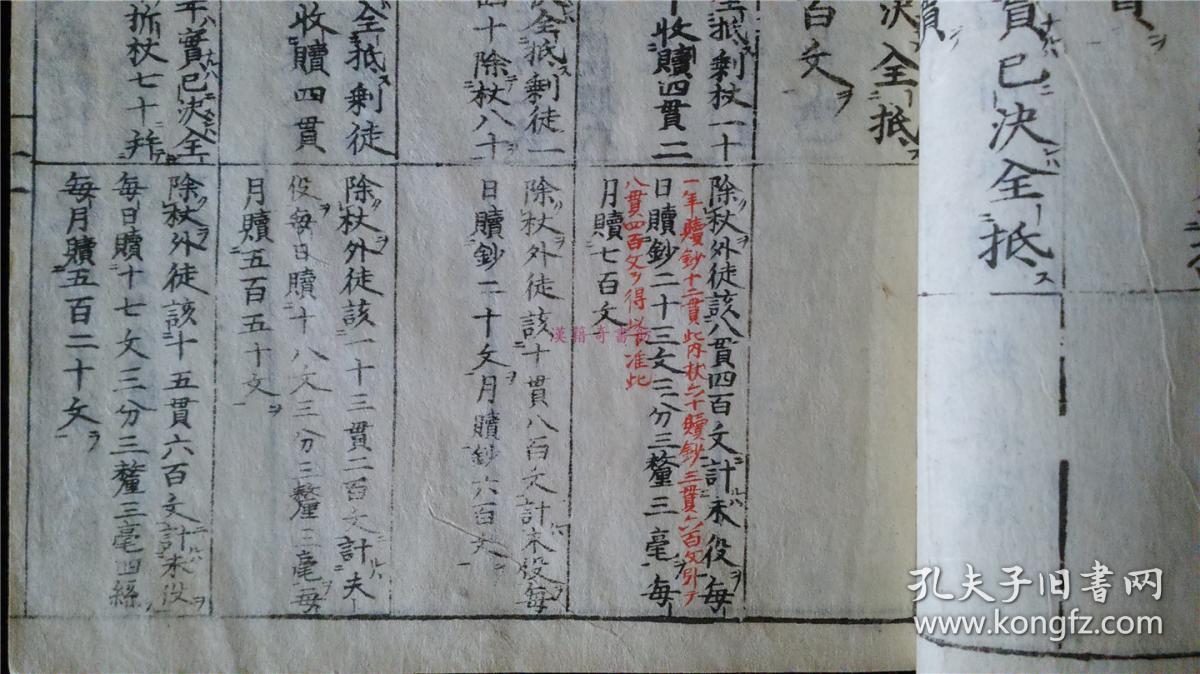 實已決全抵
決全抵
百文
全抵剩杖一十
收贖四貫二
除杖外徒該八貫四百文計未役每
一年贖鈔十二貫此內杖六十贖鈔三貫六百文引テ
日贖鈔二十三文三分三釐三毫每
八貫四百文ヲ得以下准此
月贖七百文
決全抵剩徒一
四十除杖八十
除杖外徒該十貫八百文計未役每
日贖鈔二十文月贖鈔六百文
全抵剩徒
收贖四貫
除杖外徒該一十三貫二百文計夫
役每日贖十八文三分三釐三毫每
月贖五百五十文
年實已決全
折杖七十并
除杖外徒該十五貫六百文計未役
每日贖十七文三分三釐三毫四絲
每月贖五百二十文
漢籍奇書
孔夫子旧书网
www.kongfz.com